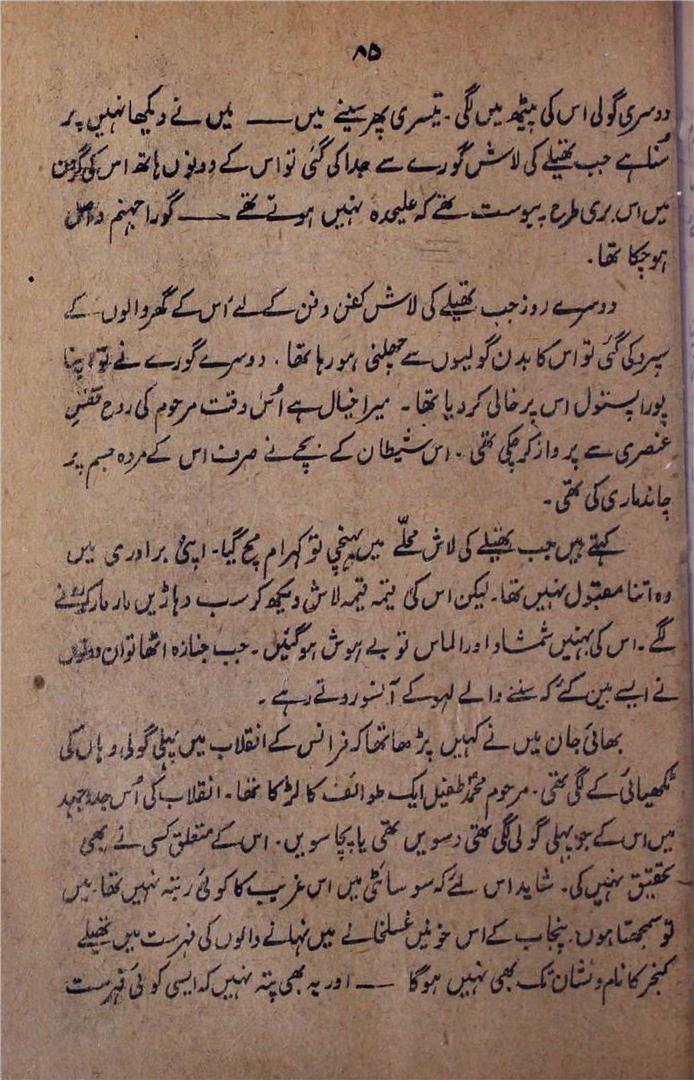 ۸۵
دوسری گولی اس کی پیٹھ میں لگی۔ تیسری پھر سینے میں — میں نے دیکھا نہیں پر
سُنا ہے جب تھیلے کی لاش گورے سے جدا کی گئی تو اس کے دونوں ہاتھ اس کی گردن
میں اس بری طرح پیوست تھے کہ علیحدہ نہیں ہوتے تھے — گورا جہنم واصل
ہو چکا تھا۔
دوسرے روز جب تھیلے کی لاش کفن دفن کے لئے اُس کے گھر والوں کے
سپرد کی گئی تو اس کا بدن گولیوں سے چھلنی ہو رہا تھا۔ دوسرے گورے نے تو اپنا
پورا پستول اس پر خالی کر دیا تھا۔ میرا خیال ہے اُس وقت مرحوم کی روح قفسِ
عنصری سے پرواز کر چکی تھی۔ اس شیطان کے بچے نے صرف اس کے مردہ جسم پر
چاندماری کی تھی۔
کہتے ہیں جب تھیلے کی لاش محلّے میں پہنچی تو کہرام مچ گیا۔ اپنی برادری میں
وہ اتنا مقبول نہیں تھا۔ لیکن اس کی قیمہ قیمہ لاش دیکھ کر سب دہاڑیں مار مار کر رونے
لگے۔ اس کی بہنیں شمشاد اور الماس تو بے ہوش ہو گئیں۔ جب جنازہ اٹھا تو ان دونوں
نے ایسے بین کئے کہ سننے والے لہو کے آنسو روتے رہے۔
بھائی جان میں نے کہیں پڑھا تھا کہ فرانس کے انقلاب میں پہلی گولی وہاں کی
ٹکھیائی کے لگی تھی۔ مرحوم محمد طفیل ایک طوائف کا لڑکا تھا۔ انقلاب کی اُس جدوجہد
میں اس کے جو پہلی گولی لگی تھی دسویں تھی یا پچاسویں۔ اس کے متعلق کسی نے بھی
تحقیق نہیں کی۔ شاید اس لئے کہ سوسائٹی میں اس غریب کا کوئی رتبہ نہیں تھا۔ میں
تو سمجھتا ہوں پنجاب کے اس خونیں غسلخانے میں نہانے والوں کی فہرست میں تھیلے
کنجر کا نام و نشان تک بھی نہیں ہو گا — اور یہ بھی پتہ نہیں کہ ایسی کوئی فہرست